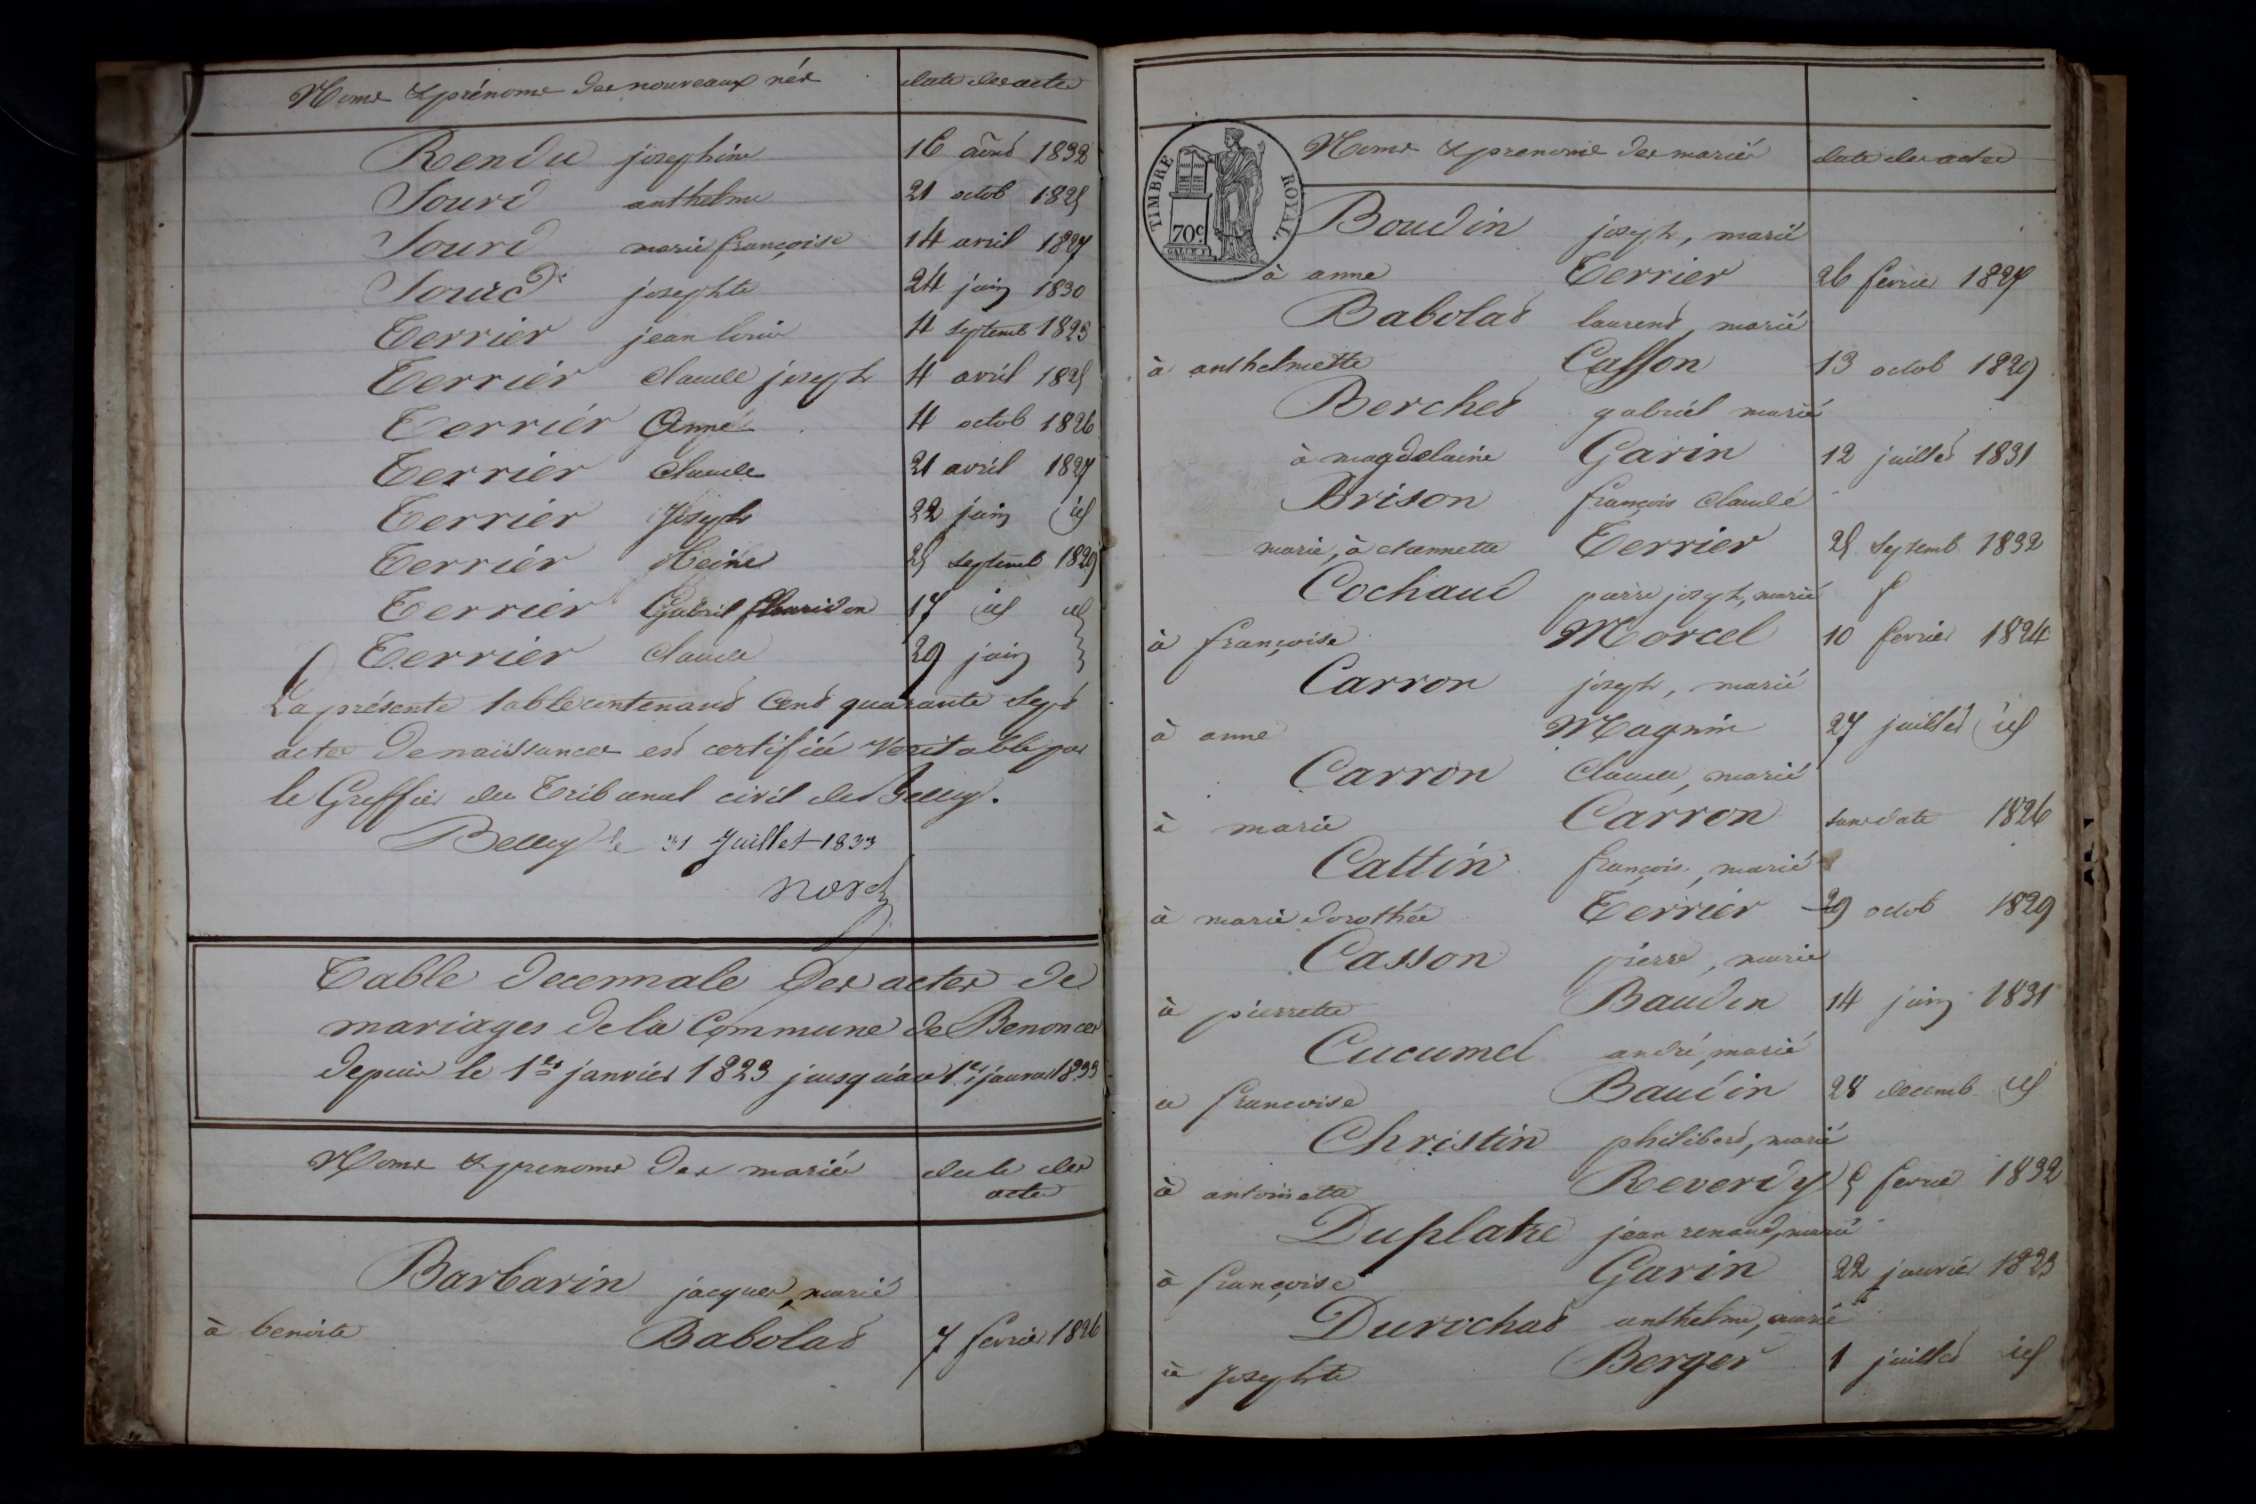 Noms & prénoms des nouveaux nés date des actes
Rendu josephine 16 1832
Sourd anthelme 21 octob 1825
Sourd marie françoise 14 avril 1827
Sourd josephte 24 juin 1830
Terrier jean louis 4 septemb 1823
Terrier claude joseph 4 avril 1825
Terrier Anne 4 octob 1826
Terrier claude 21 avril 1827
Terrier Joseph 22 juin id
Terrier Reine 25 septemb 1829
Terrier Gabriel 17 id id
Terrier claude 29 juin
La présente table contenant Cent quarante Sept
actes de naissances est certifiée Veritable par
le Greffier du Tribunal civil de Belley.
Belley le 31 Juillet 1833
Table decennale des actes de
mariages de la Commune de Benonces
depuis le 1er janvier 1823 jusqu'au 1er janvier 1833
Noms & prenoms des mariés date des
actes
Barbarin jacques, marié
à benoite Babolat 7 fevrier 1826
TIMBRE ROYAL.
70c
Noms & prenoms des mariés date des actes
Boudin joseph, marié
à anne Terrier 26 fevrier 1827
Babolat laurent, marié
à anthelmette Casson 13 octob 1829
Berchet gabriel marié
à magdelaine Garin 12 juillet 1831
Brison françois claude
marié, à Terrier 25 septemb 1832
Cochaud pierre joseph, marié
à françoise Morcel 10 fevrier 1824
Carron joseph, marié
à anne Magnin 27 juillet id
Carron claude, marié
à marie Carron sans date 1826
Cattin françois, marié
à marie dorothée Terrier 29 octob 1829
Casson pierre, marié
à pierrette Baudin 14 juin 1831
Cucumel andré, marié
a francoise Baudin 28 decemb id
Christin philibert, marié
à antoinette Reverdy 5 fevrier 1832
Duplatre jean renaud, marié
à françoise Garin 22 janvier 1823
Durochat anthelme, marié
à josephte Berger 1 juillet id